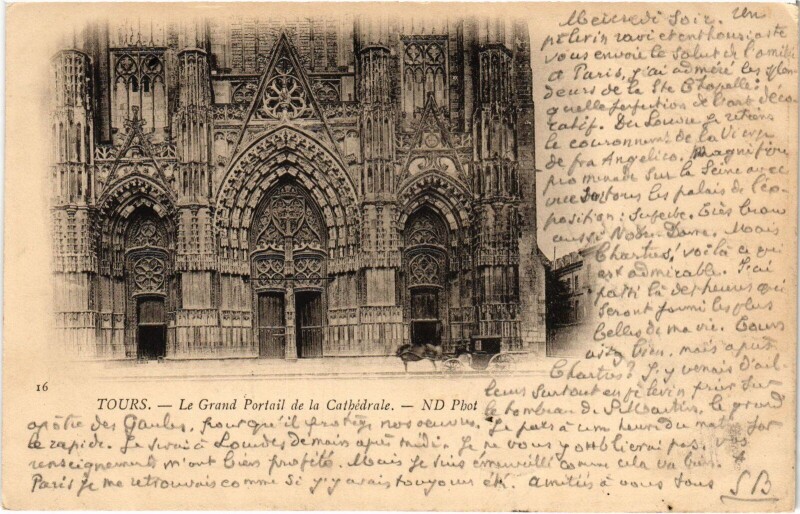 Mercredi soir. Un
pèlerin ravi et enthousiaste
vous envoie le salut de l'amitié
A Paris, j'ai admiré les splen
deurs de la Ste Chapelle:
quelle perfection de l'art déco
ratif. Du Louvre, je retiens
le couronnemt de la Vierge
de fra Angelico. Magnifique
promenade sur la Seine avec
vue sur tous les palais de l'ex-
position: superbe. Très beau
aussi Notre-Dame. Mais
Chartres! voilà ce qui
est admirable. J'ai
passé là des heures qui
seront parmi les plus
belles de ma vie. Tours
aussi bien, mais après
Chartres? J'y venais d'ail-
leurs surtout en pèlerin prier sur
le tombeau de St Martin, le grand
apôtre des Gaules, pour qu'il protège nos oeuvres. Je pars à une heure du matin par
le rapide. Je serai à Lourdes demain après midi. Je ne vous y oublierai pas. Vos
renseignements m'ont bien profité. Mais je suis émerveillé comme cela va bien. A
Paris je me retrouvais comme si j'y avais toujours été. Amitiés à vous tous SB
16
TOURS. — Le Grand Portail de la Cathédrale. — ND Phot